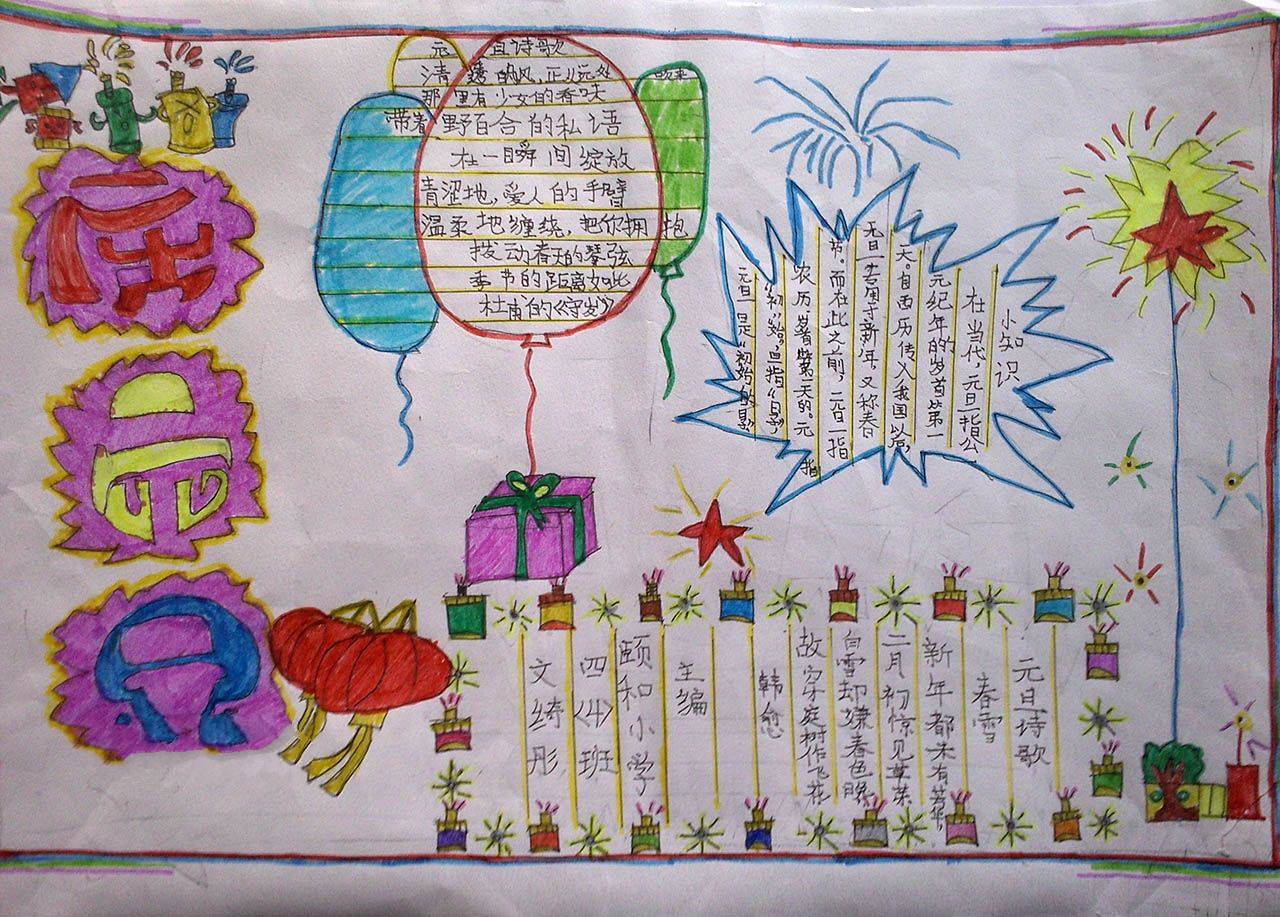 庆
元
旦
元旦诗歌
清绣的风,正从远处吹来
那里有少女的香味
带着野百合的私语
在一瞬间绽放
青涩地,爱人的手臂
温柔地缠绕,把你拥抱
拨动春天的琴弦
季节的距离如此
杜甫的《守岁》
小知识
在当代,元旦一指公
元纪年的岁首第一
天。自西历传入我国以后,
元旦一 用于新年,又称春
节。而在此之前,元旦一指
农历岁首第一天的。元指
“初”始,旦指“日子”,
元旦是“初始的日子
元旦诗歌
春雪
新年都未有芳华,
二月初惊见草芽
白雪却嫌春色晚
故穿庭树作飞花
韩愈
主编
颐和小学
四〈4〉班
文绮彤